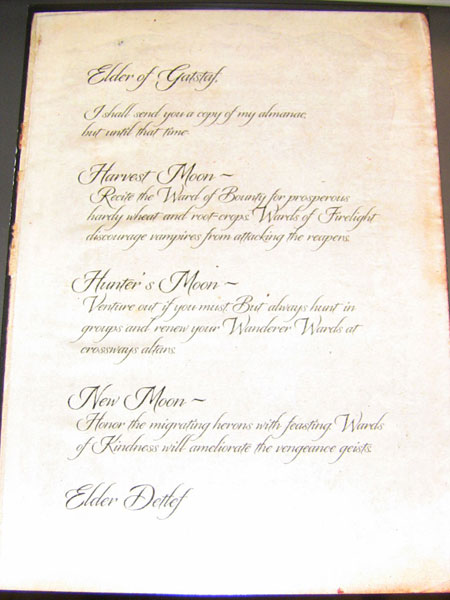 Elder of Gatstaf,
I shall send you a copy of my almanac,
but until that time
Harvest Moon ~
Recite the Ward of Bounty for prosperous
hardy wheat and root-crops. Wards of Firelight
discourage vampires from attacking the reapers.
Hunter's Moon ~
Venture out if you must But always hunt in
groups and renew your Wanderer Wards at
crossways altars.
New Moon ~
Honor the migrating herons with feasting Wards
of Kindness will ameliorate the vengeance geists.
Elder Detlef